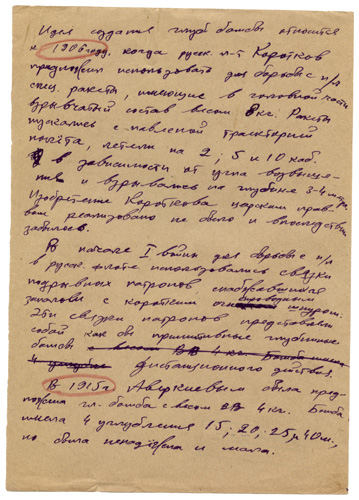 Идея создания глуб бомбы относится
к 1906 году, когда русск. л-т Коротков
предложил использовать для борьбы с п/л
спец. ракеты, имеющие в головной части
взрывчатый состав весом 8 кг. Ракеты
пускались с навесной траекторией
полёта, летели на 2; 5 и 10 каб.
в зависимости от угла возвыше-
ния и взрывались на глубине 3-4 метра
Изобретение Короткова царским прав-
вом реализовано не было и впоследствии
забылось.
В начале I войны для борьбы с п/л
в русск. флоте использовались связки
подрывных патронов снабжавшиеся
запалами с коротким бикфордовым шнуром.
Эти связки патронов представляли
собой как бы примитивные глубинные
бомбы с весом ВВ 4 кг. Бомба имела
4 углубления дистанционного действия.
В 1915 г Аверкиевым была пред-
ложена гл. бомба с весом ВВ 4 кг. Бомба
имела 4 углубления 15; 20; 25; и 40 м.,
но была ненадёжна и мала.